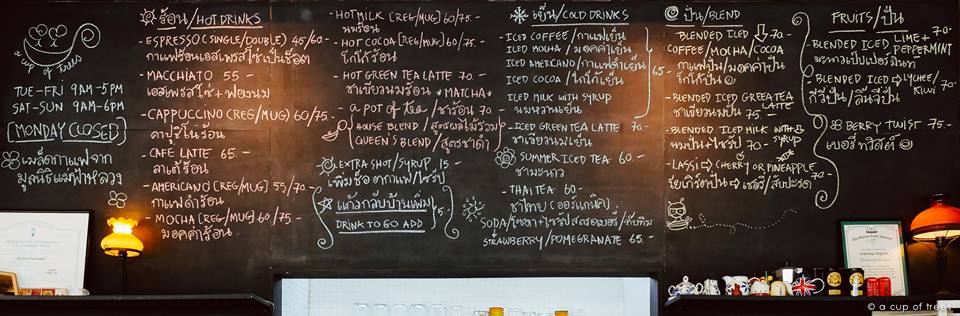 a cup of trees
TUE-FRI 9AM-5PM
SAT-SUN 9AM-6PM
[MONDAY CLOSED]
เมล็ดกาแฟจาก
มูลนิธิแม่ฟ้าหลวง
ร้อน/HOT DRINKS
-ESPRESSO (SINGLE/DOUBLE) 45/60.-
-MACCHIATO 55 -
เอสเพรสโซ่ + ฟองนม
-CAPPUCCINO (REG/MUG) 60/75 -
คาปูชิโนร้อน
-CAFE LATTE 65.
ลาเต้ร้อน
-AMERICANO [REG/MUG] 55/70.-
กาแฟดำร้อน
-MOCHA [REG/MUG] 60/75 -
มอคค่าร้อน
-HOT MILK [REG/MUG] 60/75.-
นมร้อน
-HOT COCOA [REG/MUG] 60/75.-
โกโก้ร้อน
-HOT GREEN TEA LATTE 70.-
ชาเขียวนมร้อน *MATCHA*
-a POT of tea/ชาร้อน 70.-
HOUSE BLEND/
QUEEN'S BLEND/
EXTRA SHOT/SYRUP 15 -
เพิ่มช็อตกาแฟ/ไซรัป
แก้วกลับบ้านเพิ่ม
DRINK TO GO ADD
5.-
เย็น/COLD DRINKS
ICED COFFEE/กาแฟเย็น
ICED MOCHA/มอคค่าเย็น
ICED AMERICANO/กาแฟดำเย็น
ICED COCOA/โกโก้เย็น
65.-
ICED MILK WITH SYRUP
นมเย็น
-ICED GREEN TEA LATTE 70.-
ชาเขียวนมเย็น
SUMMER ICED TEA 60.-
ชามะนาว
-THAI TEA 60-
ชาไทย (ออร์แกนิค)
SODA/โซดา+ไซรัปสตรอเบอรี่/ทับทิม
STRAWBERRY/POMEGRANATE 65.-
ปั่น/BLEND
-BLENDED ICED 70.-
COFFEE/MOCHA/COCOA
กาแฟปั่น/มอคค่าปั่น
โกโก้ปั่น
-BLENDED ICED GREEN TEA LATTE
ชาเขียวนมปั่น 75.-
-BLENDED ICED MILK WITH SYRUP
นมปั่น+ไซรัป 70-
-LASSI → CHERRY OR PINEAPPLE
โยเกิร์ตปั่น → เชอรี่/สับปะรด 70-
FRUITS/ปั่น
-BLENDED ICED LIME + PEPPERMINT
มะนาวเป็ปเปอร์มิ้นท์ 70-
-BLENDED ICED → LYCHEE/KIWI
กีวีปั่น/ลิ้นจี่ปั่น 70-
BERRY TWIST 75.-
เบอร์รี่ทวิสต์
© a cup of trees